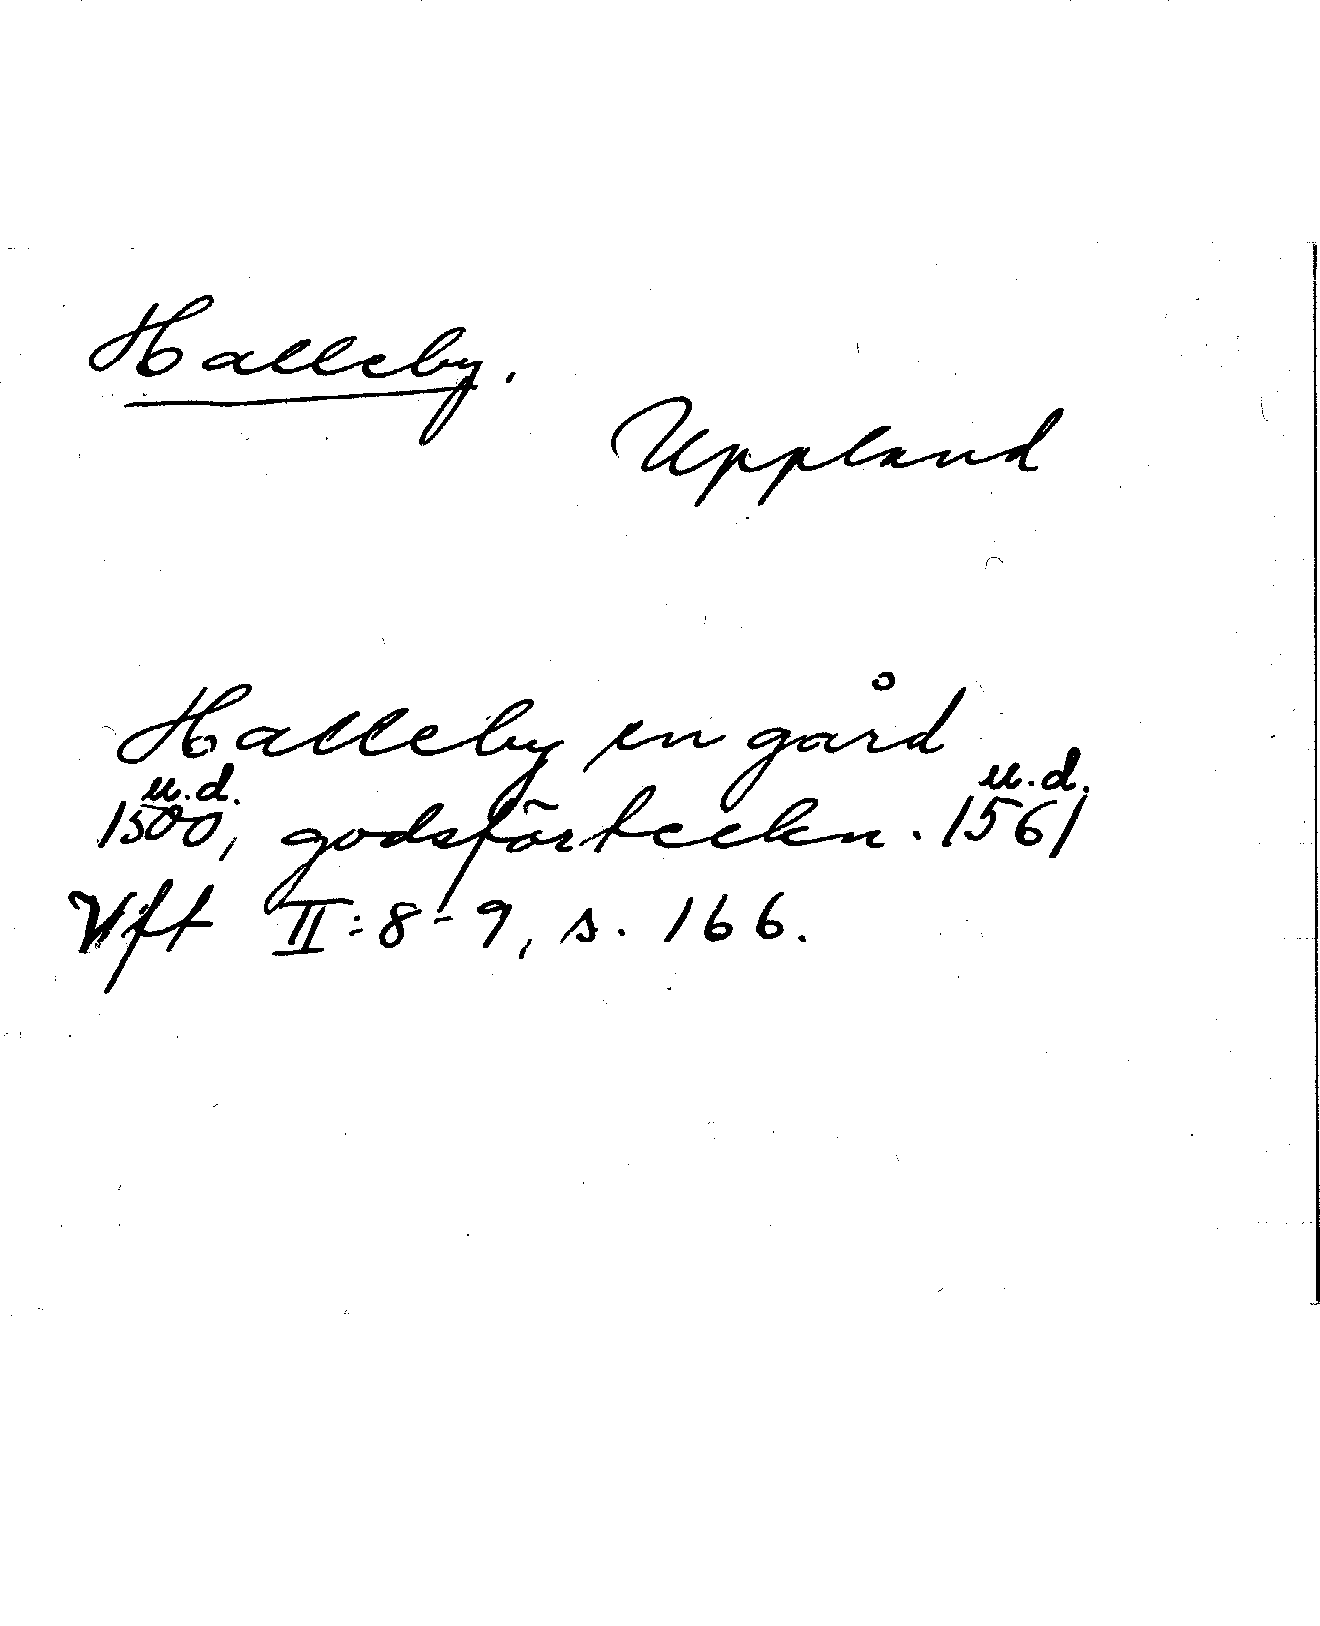 Halleby.
Uppland
Halleby en gård
u.d. u.d.
1500, godsförteckn. 1561
Vft II:8-9, s. 166.